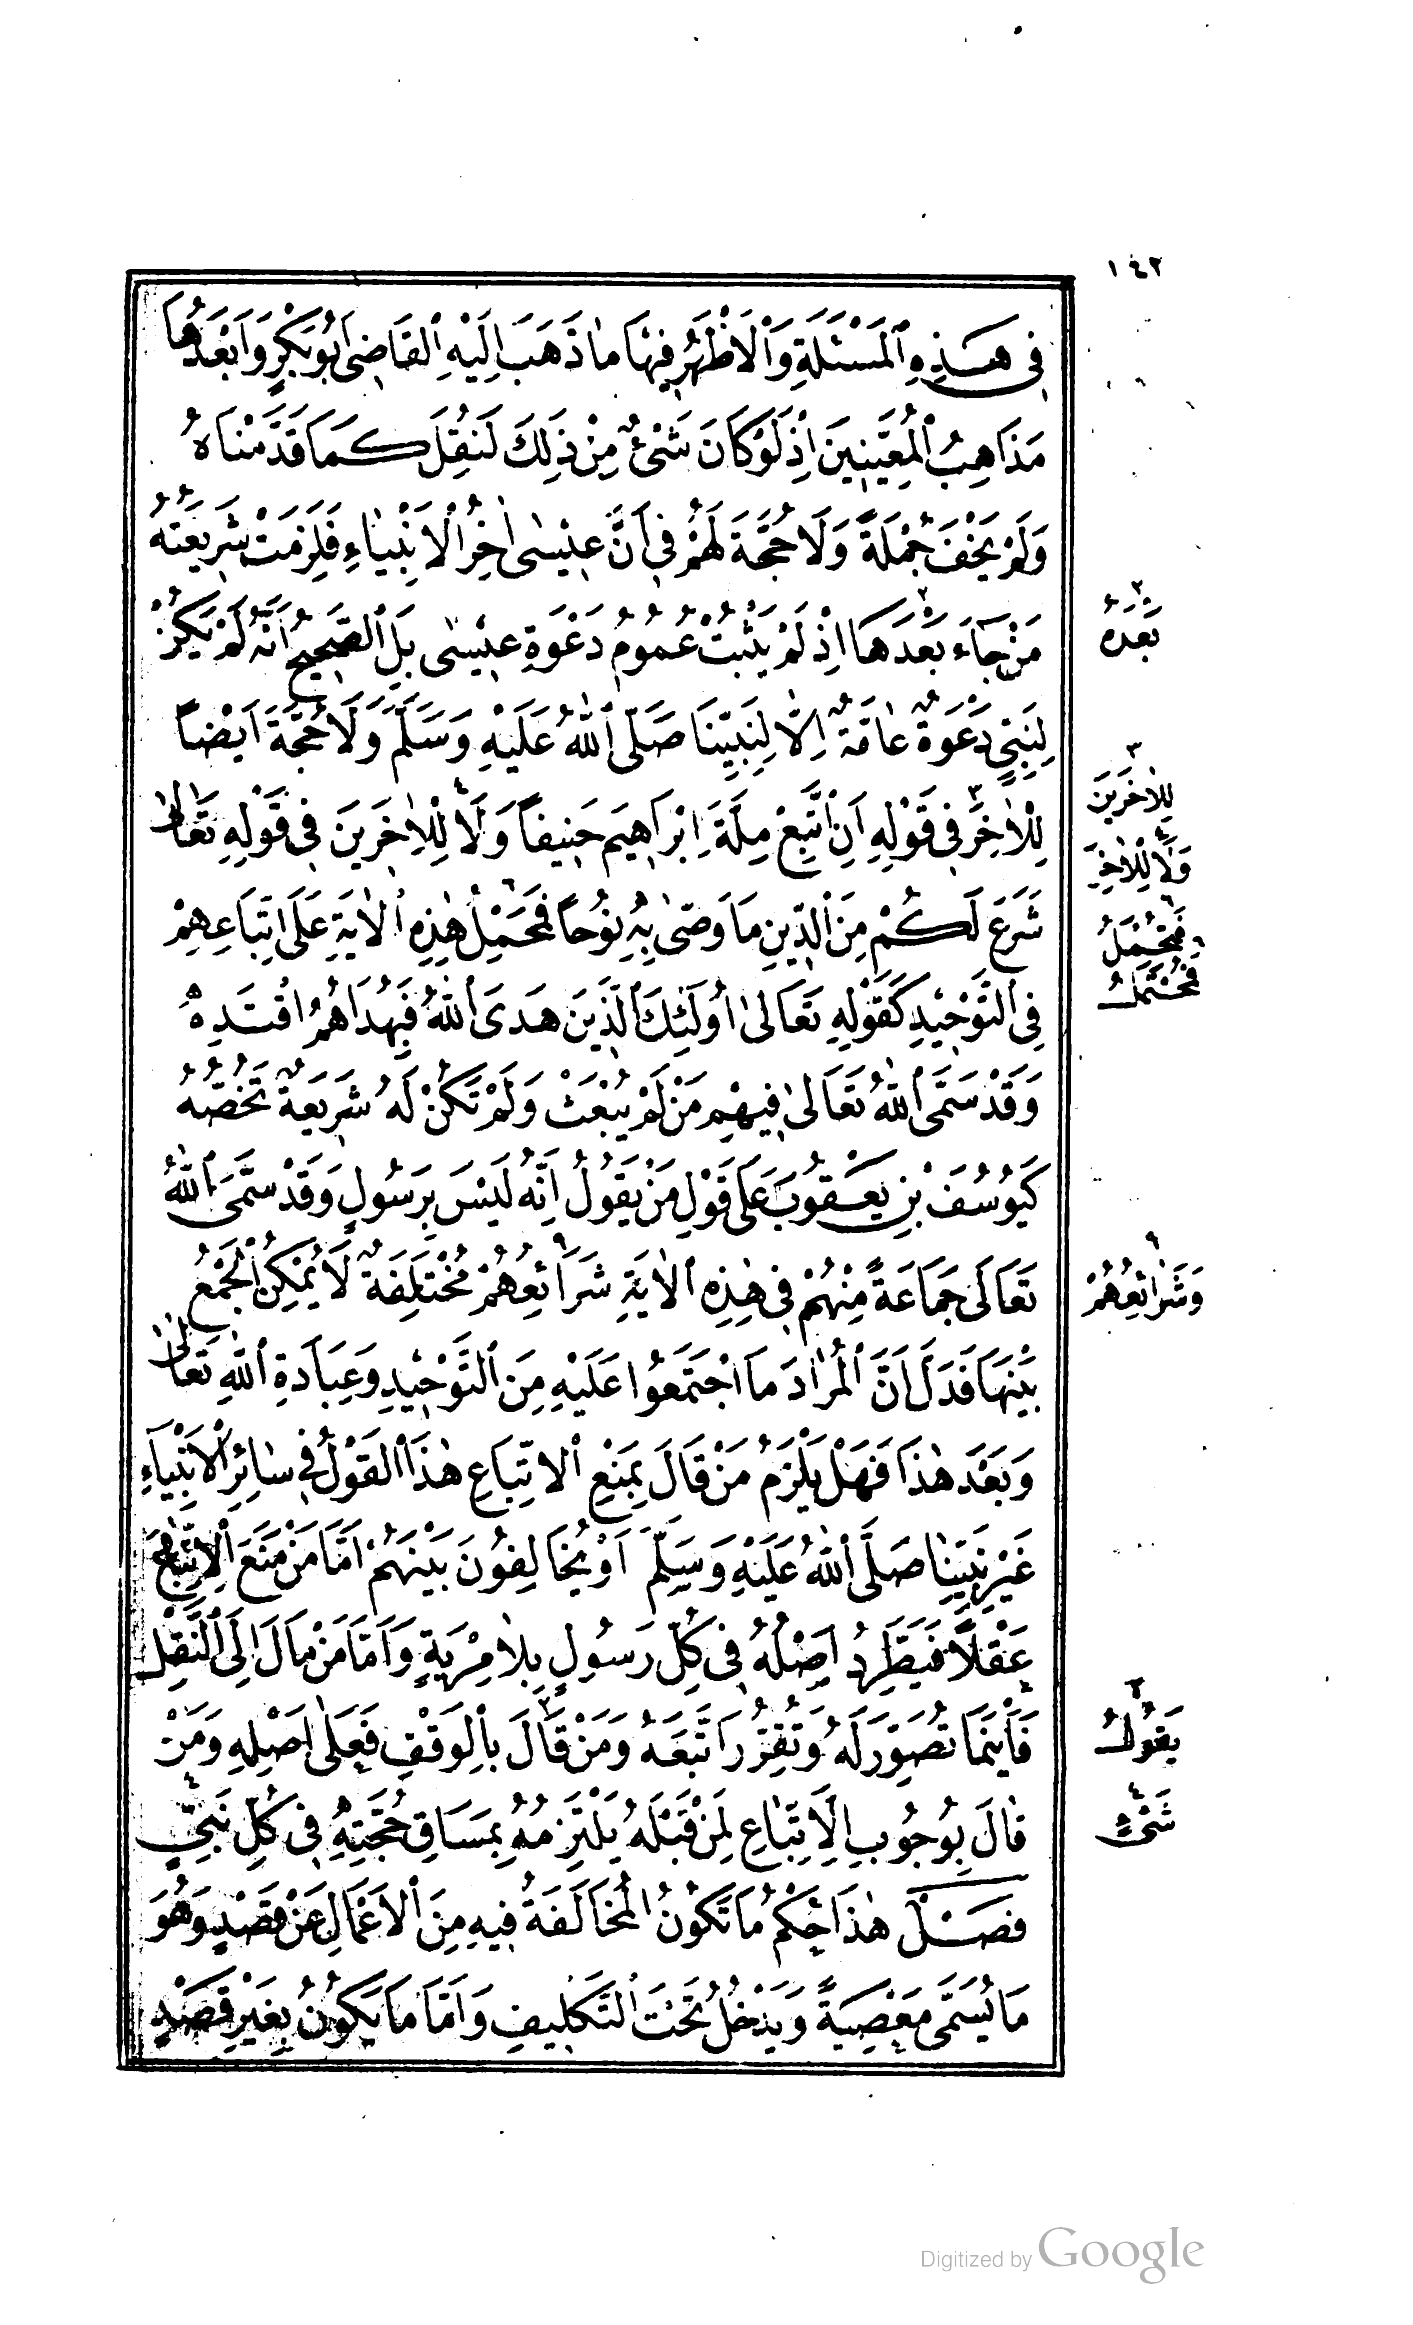 ١٤٢
فِي هٰذِهِ الْمَسْئَلَةِ وَالْاَظْهَرُ فِيْهَا مَاذَهَبَ اِلَيْهِ الْقَاضِى اَبُوبَكْرٍ وَاَبْعَدُهَا
مَذَاهِبُ الْمُعَيِّنِينَ اِذْ لَوْ كَانَ شَىْءٌ مِنْ ذٰلِكَ لَنُقِلَ كَمَا قَدَّمْنَاهُ
وَلَمْ يَخْفَ جُمْلَةً وَلَا حُجَّةَ لَهُمْ فِي اَنَّ عِيْسٰى اٰخِرُ الْاَنْبِيَاءِ فَلَزِمَتْ شَرِيعَتُهُ
مَنْ جَاءَ بَعْدَهَا اِذْ لَمْ يَثْبُتْ عُمُومُ دَعْوَةِ عِيْسٰى بَلِ الصَّحِيحُ اَنَّهُ لَمْ يَكُنْ
لِنَبِيٍّ دَعْوَةٌ عَامَّةٌ اِلَّا لِنَبِيِّنَا صَلَّى اللّٰهُ عَلَيْهِ وَسَلَّمَ وَلَا حُجَّةَ اَيْضًا
لِلْاٰخَرِ فِي قَوْلِهِ اَنِ اتَّبِعْ مِلَّةَ اِبْرَاهِيمَ حَنِيفًا وَلَا لِلْاٰخَرِينَ فِي قَوْلِهِ تَعَالٰى
شَرَعَ لَكُمْ مِنَ الدِّينِ مَا وَصّٰى بِهِ نُوْحًا فَمَحْمِلُ هٰذِهِ الْاٰيَةِ عَلَى اتِّبَاعِهِمْ
فِي التَّوْحِيْدِ كَقَوْلِهِ تَعَالٰى اُولٰئِكَ الَّذِينَ هَدَى اللّٰهُ فَبِهُدَاهُمُ اقْتَدِهْ
وَقَدْ سَمَّى اللّٰهُ تَعَالٰى فِيهِمْ مَنْ لَمْ يُبْعَثْ وَلَمْ تَكُنْ لَهُ شَرِيعَةٌ تَخُصُّهُ
كَيُوسُفَ بْنِ يَعْقُوبَ عَلَى قَوْلِ مَنْ يَقُولُ اِنَّهُ لَيْسَ بِرَسُولٍ وَقَدْ سَمَّى اللّٰهُ
تَعَالَى جَمَاعَةً مِنْهُمْ فِي هٰذِهِ الْاٰيَةِ شَرَائِعُهُمْ مُخْتَلِفَةٌ لَا يُمْكِنُ الْجَمْعُ
بَيْنَهَا فَدَلَّ اَنَّ الْمُرَادَ مَا اجْتَمَعُوا عَلَيْهِ مِنَ التَّوْحِيْدِ وَعِبَادَةِ اللّٰهِ تَعَالٰى
وَبَعْدَ هٰذَا فَهَلْ يَلْزَمُ مَنْ قَالَ بِمَنْعِ الْاِتِّبَاعِ هٰذَا الْقَوْلُ فِي سَائِرِ الْاَنْبِيَاءِ
غَيْرِ نَبِيِّنَا صَلَّى اللّٰهُ عَلَيْهِ وَسَلَّمَ اَوْ يُخَالِفُونَ بَيْنَهُمْ اَمَّا مَنْ مَنَعَ الْاِتِّبَاعَ
عَقْلًا فَيَطَّرِدُ اَصْلُهُ فِي كُلِّ رَسُولٍ بِلَا مِرْيَةٍ وَاَمَّا مَنْ مَالَ اِلَى النَّقْلِ
فَاَيْنَمَا تُصُوِّرَ لَهُ وَتُقُرِّرَ اتَّبَعَهُ وَمَنْ قَالَ بِالْوَقْفِ فَعَلَى اَصْلِهِ وَمَنْ
قَالَ بِوُجُوبِ الْاِتِّبَاعِ لِمَنْ قَبْلَهُ يَلْتَزِمُهُ بِمَسَاقِ حُجَّتِهِ فِي كُلِّ نَبِيٍّ
فَصْلٌ هٰذَا حُكْمُ مَا تَكُونُ الْمُخَالَفَةُ فِيهِ مِنَ الْاَعْمَالِ عَنْ قَصْدٍ وَهُوَ
مَا يُسَمَّى مَعْصِيَةً وَيَدْخُلُ تَحْتَ التَّكْلِيفِ وَاَمَّا مَا يَكُونُ بِغَيْرِ قَصْدٍ
٢
بَعْدَهُ
٣
لِلْاٰخَرِينَ
وَلَا لِلْاٰخَرِ
فَتُحْمَلُ
فَتَحْتَمِلُ
٩
وَشَرَائِعُهُمْ
٢
يَقُولُ
٤
شَىْءٍ
Digitized by Google